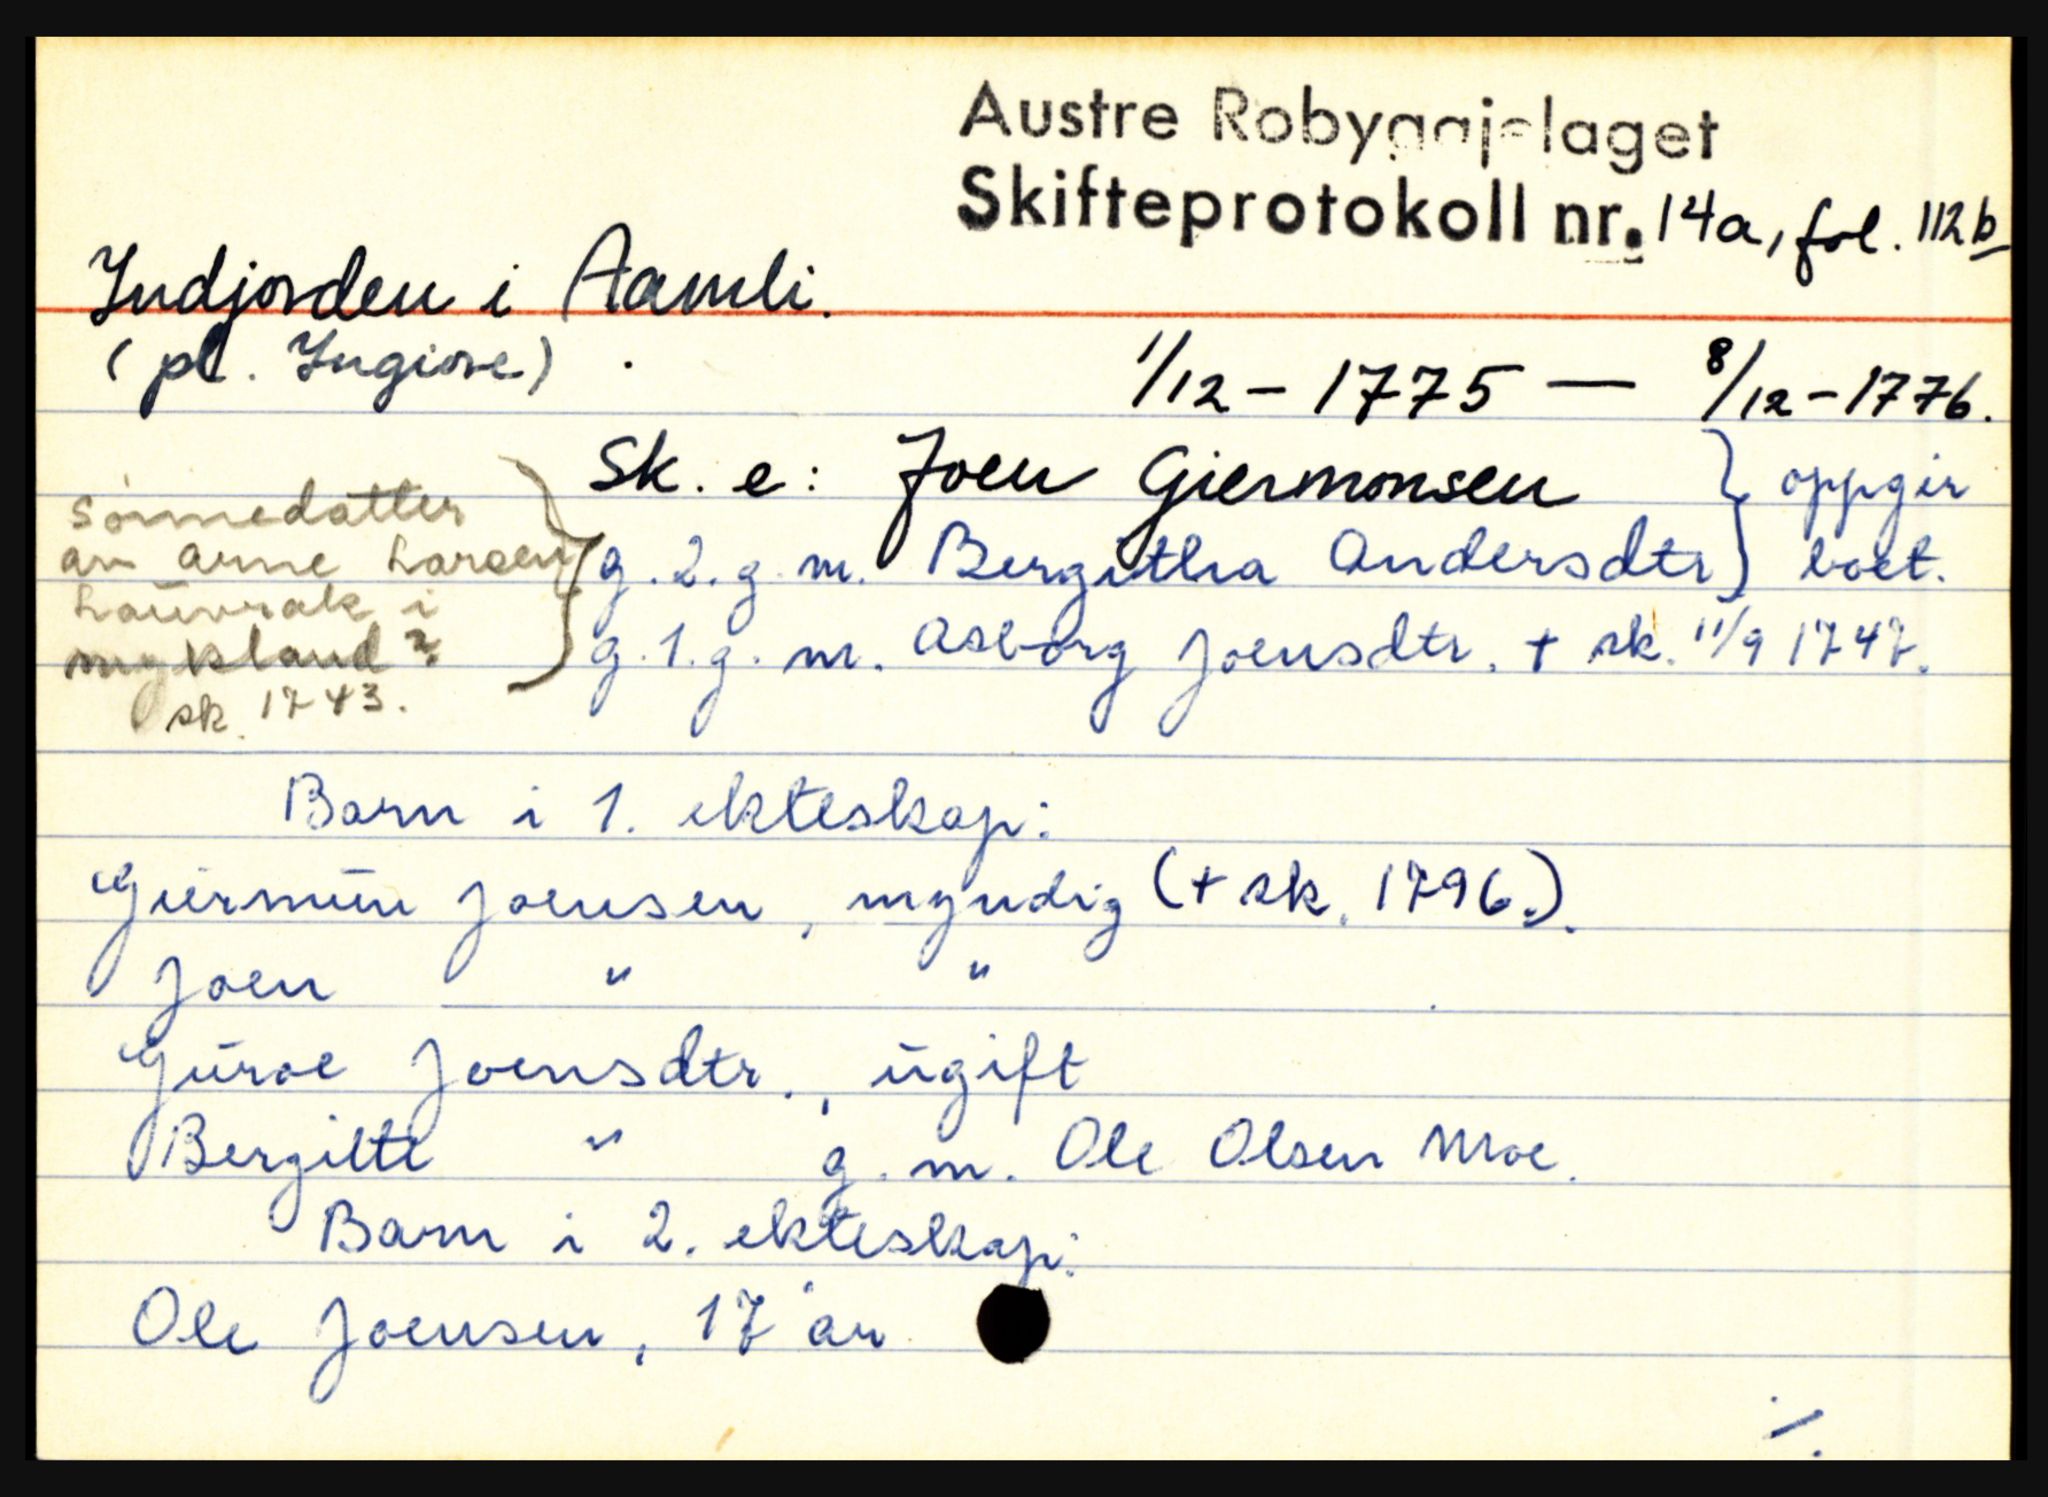 Austre Robyggjelaget
Skifteprotokoll nr. 14a, fol. 112b
Indjorden i Aamli.
(pl. Ingiore)
1/12 - 1775 — 8/12 - 1776.
Sk. e: Joen Giermonsen } oppgir
g. 2. g. m. Bergitha Andersdtr } boet.
g. 1. g. m. Asborg Joensdtr. + sk. 11/9 1747.
sønnedatter
av Arne Larsen
Lauvrak i
mykland?
sk. 1743.
Barn i 1. ekteskap:
Giermun Joensen, myndig (+ sk. 1796.).
Joen " "
Guroe Joensdtr., ugift
Bergitte " g. m. Ole Olsen Moe.
Barn i 2. ekteskap:
Ole Joensen, 17 år
./.